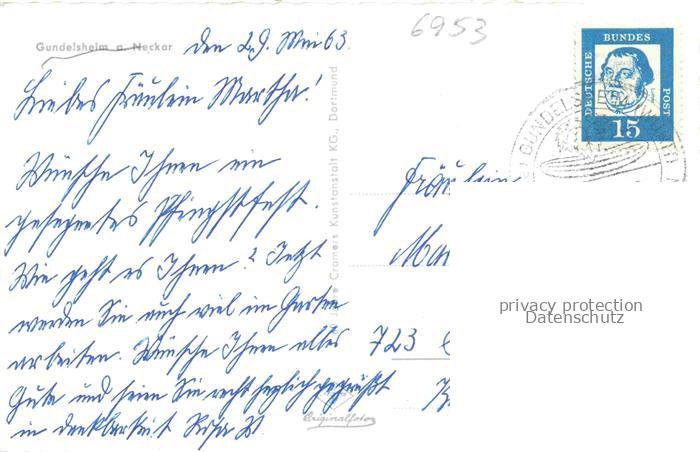 6953
Gundelsheim a. Neckar
den 29. Mai 63.
Liebes Fräulein Martha!
Wünsche Ihnen ein
gesegnetes Pfingstfest.
Wie geht es Ihnen? Jetzt
werden Sie auch viel im Garten
arbeiten. Wünsche Ihnen alles
Gute und seien Sie recht herzlich gegrüßt
in Dankbarkeit Rosa W
Cramers Kunstanstalt KG., Dortmund
Originalfoto
DEUTSCHE BUNDES POST
15
GUNDELS
Fräulein
Mar
723
privacy protection
Datenschutz